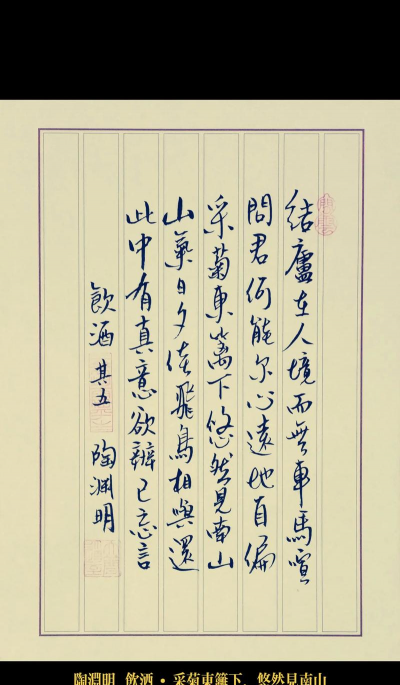 結廬在人境而無車馬喧
問君何能尔心遠地自偏
采菊東籬下悠然見南山
山氣日夕佳飛鳥相與還
此中有真意欲辨已忘言
飲酒 其五 陶渊明
陶淵明 飲酒·采菊東籬下，悠然見南山